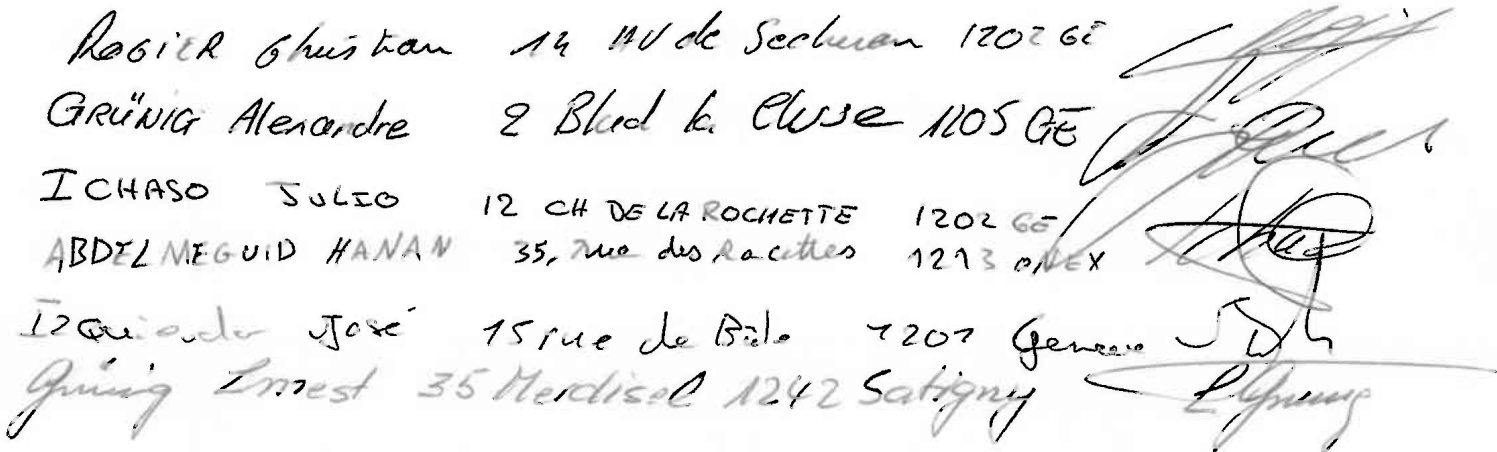 ROGIER Christian 14 AV de Secheron 1202 GE
GRÜNIG Alexandre 2 Blvd la Cluse 1205 GE
ICHASO JULIO 12 CH DE LA ROCHETTE 1202 GE
ABDEL MEGUID HANAN 35, rue des Racettes 1213 ONEX
José 15 rue de Bâle 1201 Geneve
Grünig Ernest 35 Merdisel 1242 Satigny E Grünig